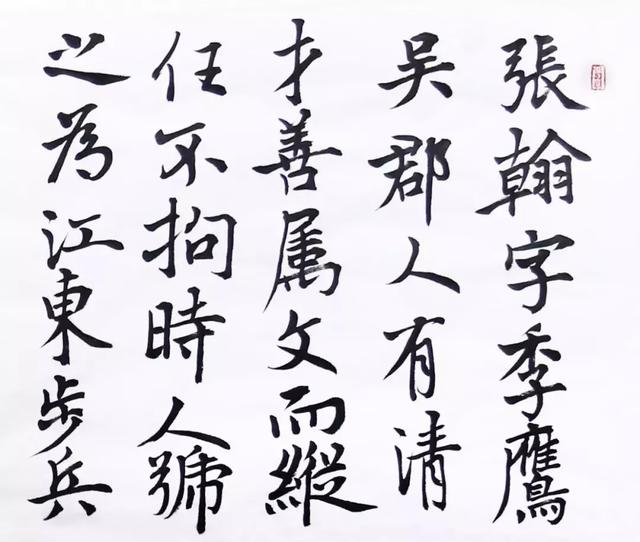 張翰字季鷹
吴郡人有清
才善属文而縱
任不拘時人號
之為江東步兵